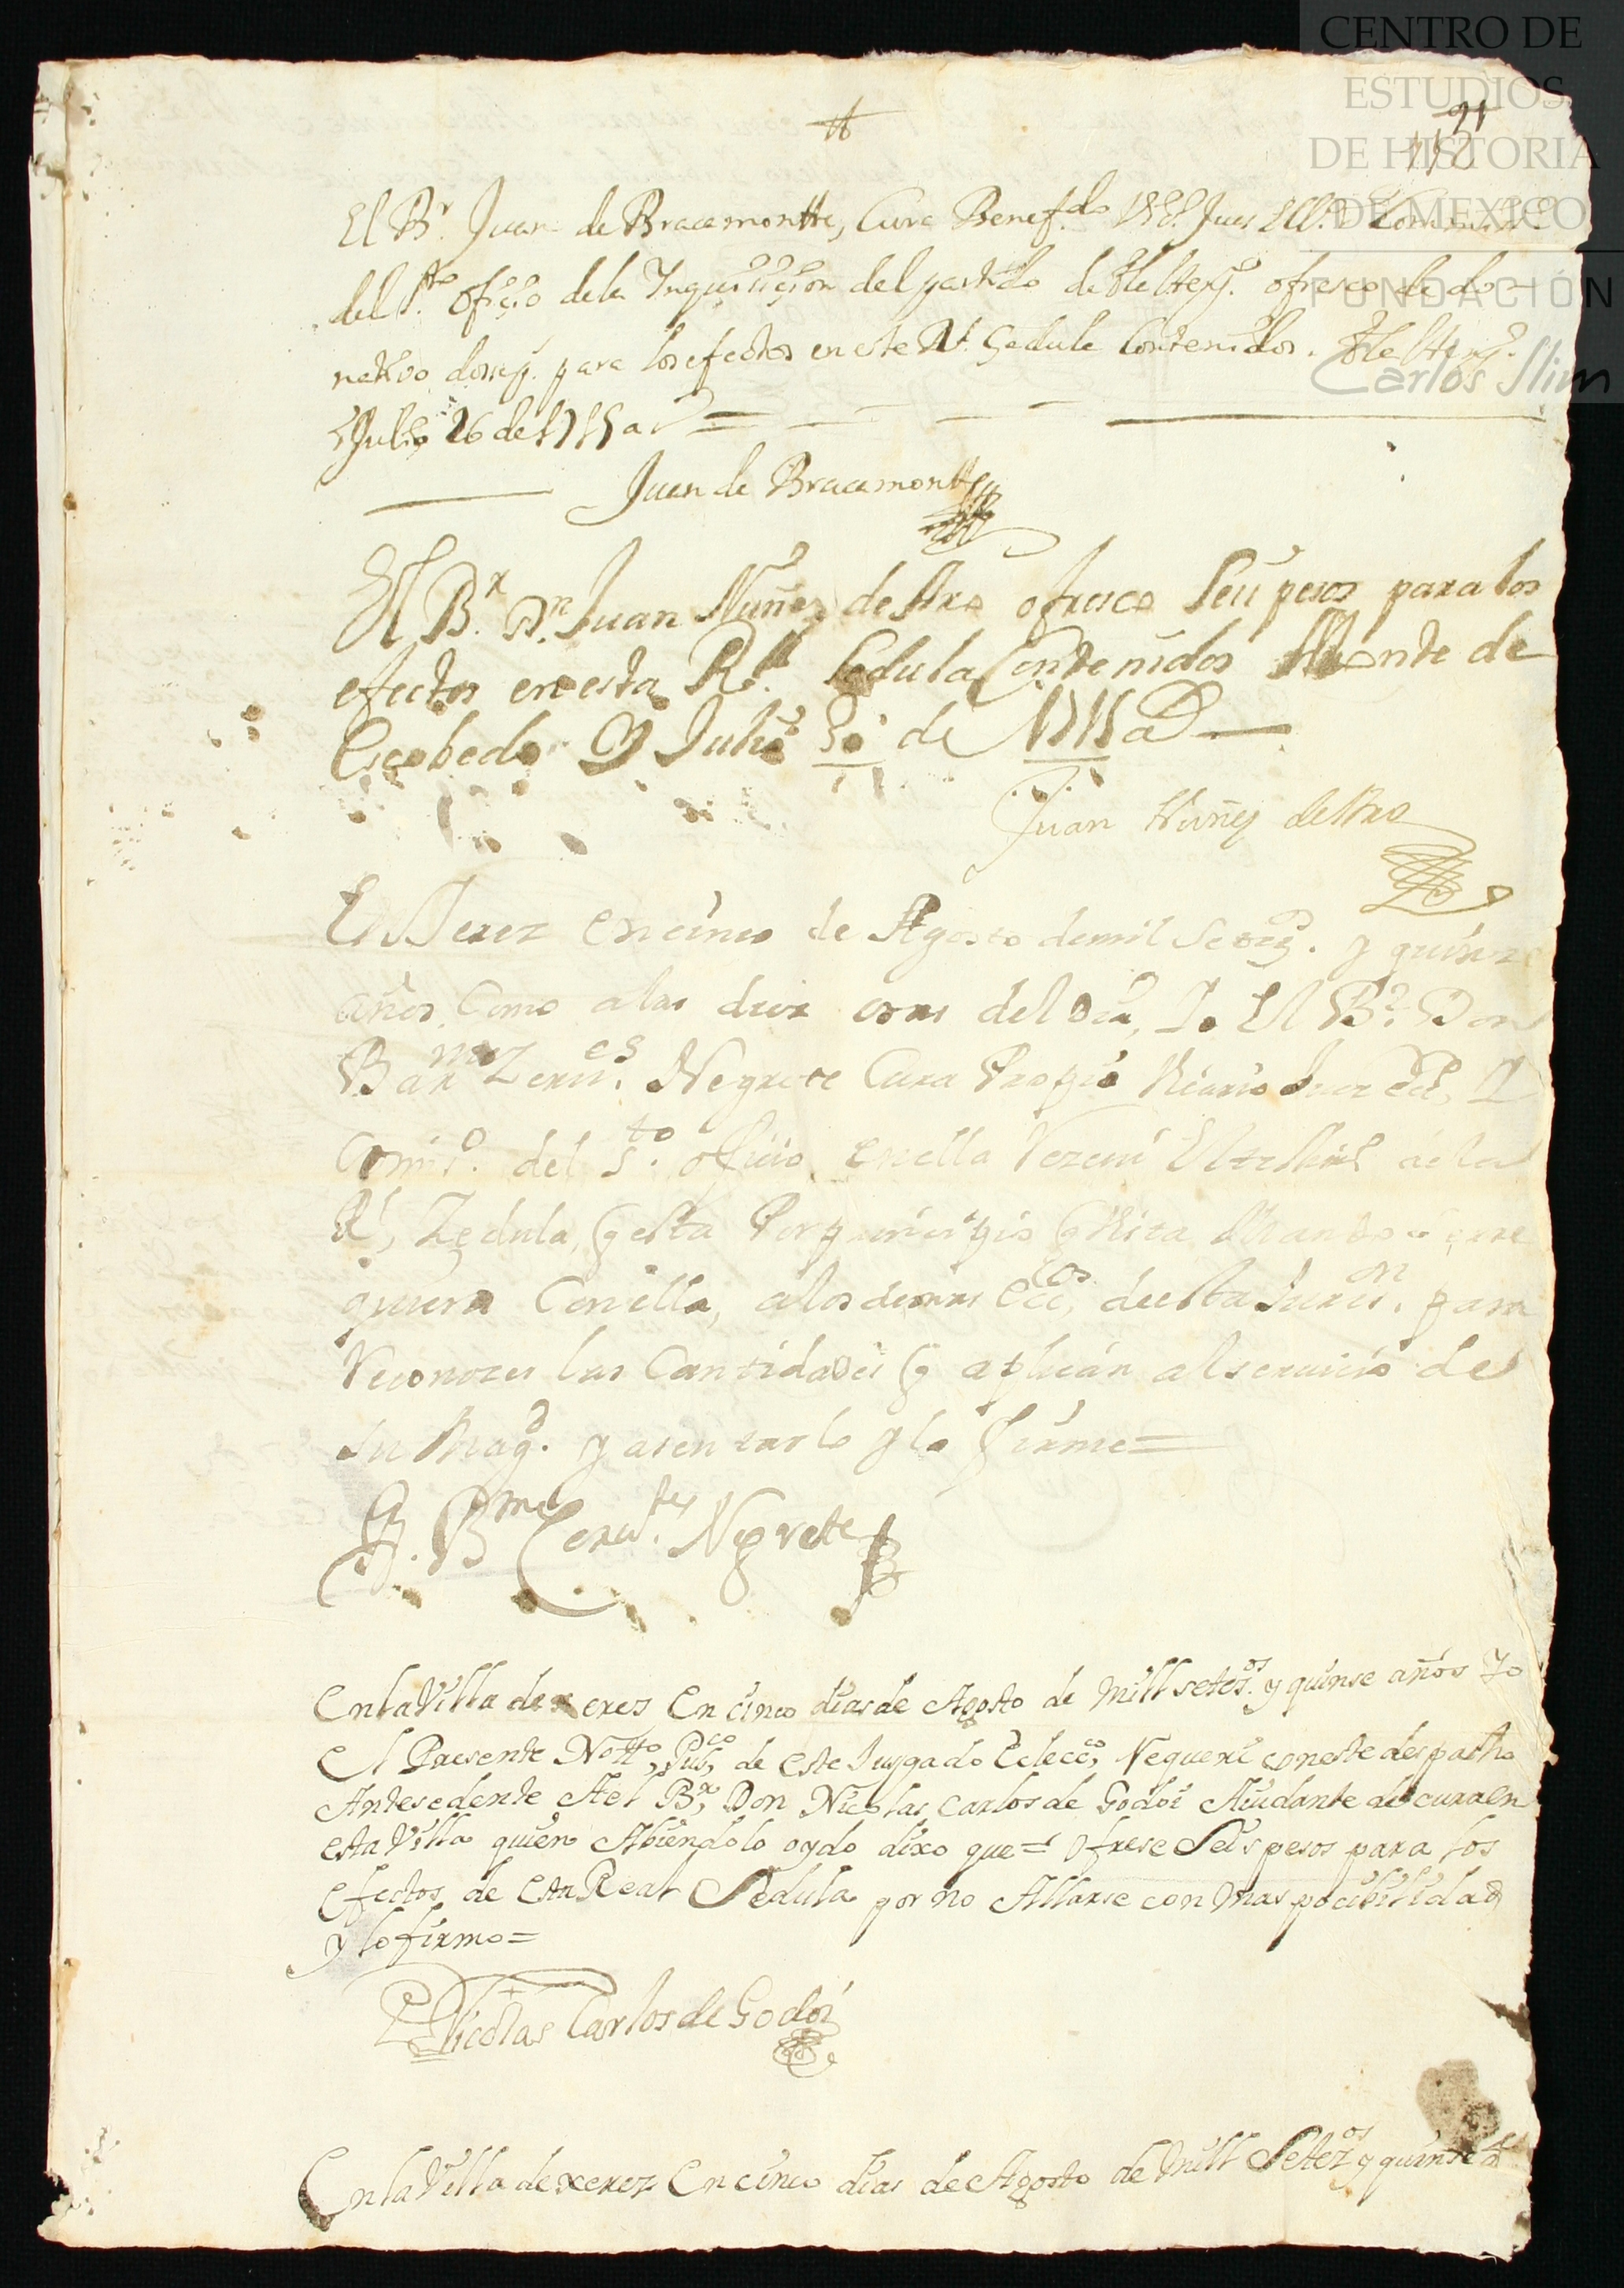 CENTRO DE
ESTUDIOS
DE HISTORIA
DE MEXICO
FUNDACIÓN
Carlos Slim
El Br. Juan de Bracamontte, Cura Benef.do
del S.to ofiçio de la Inquiçiçion del partido de ofresco de do-
natiuo para los efectos en este Rl. Çedula Contenidos.
Julio 26 de 1715 a.s =
Juan de Bracamontte
El Br. Dn. Juan Nuñez de Aro ofresco Seis pesos para los
efectos en esta Rl. Cedula Contenidos Monte de
Escobedo Y Julio 30 de 1715 a
Juan Nuñez de Aro
En Jerez en cinco de Agosto de mil setez.s y quinze
años, Como a las diez oras del dia, Yo El Br. Don
Bar.me Zerv.es Negrete Cura Propio Vicario Juez ecc, Y
Comis.o del S.to ofiçio, en ella Rezeui
Rl, Zedula, q esta Por prinsipio q Vista
quiera Con ella, a los demas Ecc.cos de esta Juris.on para
Reconozer las Cantidades q aplican al seruicio de
su Mag.d y asentarlo y lo firme =
B.me Cerv.tes Negrete
En la Villa de xeres en cinco dias de Agosto de Mill setes.os y quinse años Yo
El Presente Notto, Pub.co de este Jusgado Eclec.co, Requeri con este despacho
Antesedente A el Br, Don Nicolas Carlos de Godoi Aiudante de cura en
esta Villa quien Abiendolo oydo dixo que = Ofrese Seis pesos para los
efectos de esta Real Sedula por no Allarse con mas pocibilidad
y lo firmo =
Nicolas Carlos de Godoi
En la Villa de xerez En cinco dias de Agosto de Mill Setez.os y quinse